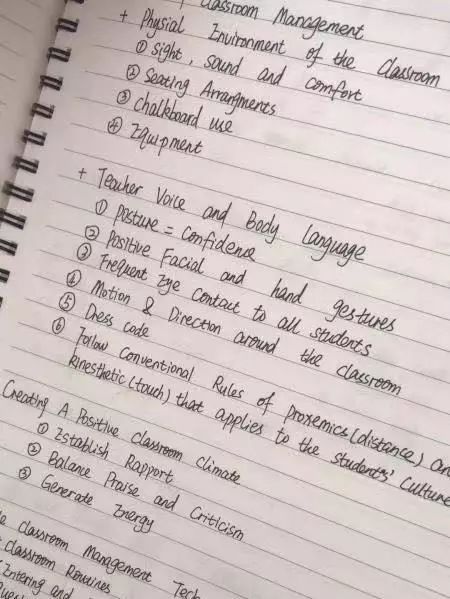 Classroom Management
+ Physial Environment of the Classroom
① Sight, sound and comfort
② Seating Arrangments
③ Chalkboard use
④ Equipment
+ Teacher Voice and Body Language
① Posture = Confidence
② Positive Facial and hand gestures
③ Frequent Eye Contact to all students
④ Motion & Direction around the classroom
⑤ Dress code
⑥ Follow Conventional Rules of Proxemics (distance) an
kinesthetic (touch) that applies to the students' culture
Creating A Positive classroom climate
① Establish Rapport
② Balance Praise and Criticism
③ Generate Energy
classroom Management Tech
classroom Routines
Entering and